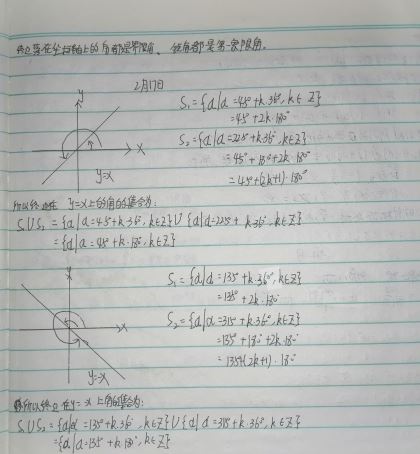 终边在坐标轴上的角都是界限角、锐角都是第一象限角。
2月17日
y
x
y=x
S₁={α|α=45°+k·360°,k∈Z}
=45°+2k·180°
S₂={α|α=225°+k·360°,k∈Z}
=45°+180°+2k·180°
=45°+(2k+1)·180°
所以终边在 y=x上的角的集合为:
S₁∪S₂={α|α=45°+k·360°,k∈Z}∪{α|α=225°+k·360°,k∈Z}
={α|α=45°+k·180°,k∈Z}
y
x
y=x
S₁={α|α=135°+k·360°,k∈Z}
=135°+2k·180°
S₂={α|α=315°+k·360°,k∈Z}
=135°+180°+2k·180°
=135°+(2k+1)·180°
所以终边在y=x上角的集合为:
S₁∪S₂={α|α=135°+k·360°,k∈Z}∪{α|α=315°+k·360°,k∈Z}
={α|α=135°+k·180°,k∈Z}